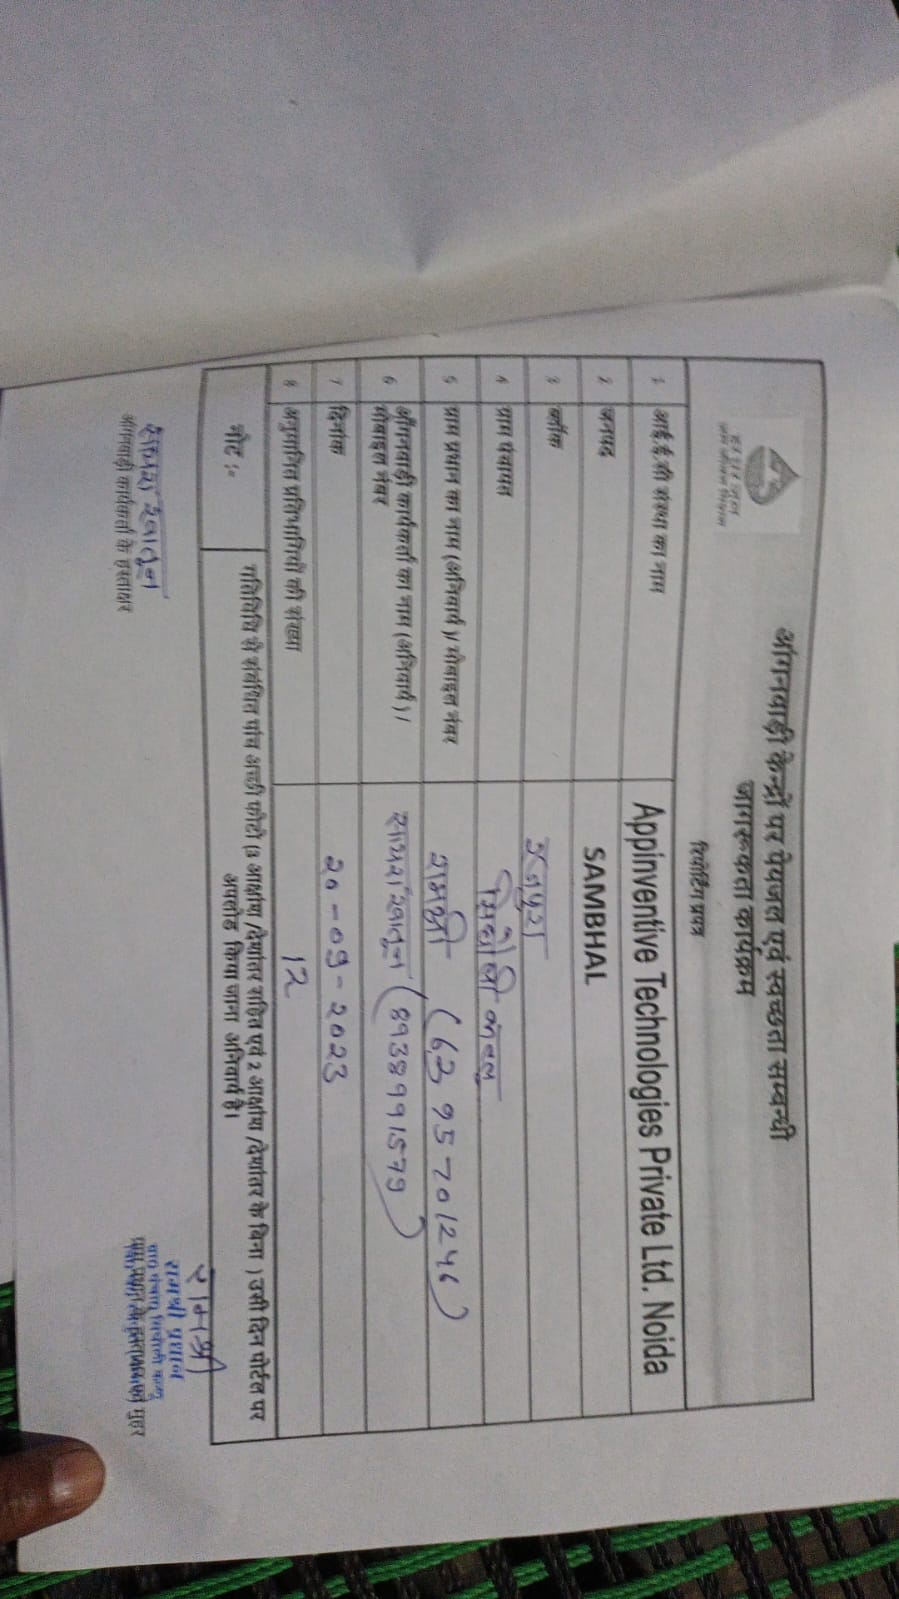 आंगनवाड़ी केन्द्रों पर पेयजल एवं स्वच्छता सम्बन्धी
जागरूकता कार्यक्रम
रिपोर्टिंग प्रपत्र
1 आई.ई.सी संस्था का नाम Appinventive Technologies Private Ltd. Noida
2 जनपद SAMBHAL
3 ब्लॉक
4 ग्राम पंचायत
5 ग्राम प्रधान का नाम (अनिवार्य)/ मोबाइल नंबर रामश्री (6395701246)
6 आँगनवाड़ी कार्यकर्ता का नाम (अनिवार्य)/ मोबाइल नंबर (8938991579)
7 दिनांक 20-09-2023
8 अनुमानित प्रतिभागियों की संख्या 12
नोट :- गतिविधि से संबंधित पांच अच्छी फोटो (3 आक्षांश /देशांतर सहित एवं 2 आक्षांश /देशांतर के बिना ) उसी दिन पोर्टल पर
अपलोड किया जाना अनिवार्य है।
रामश्री
रामश्री प्रधान
आंगनवाड़ी कार्यकर्ता के हस्ताक्षर